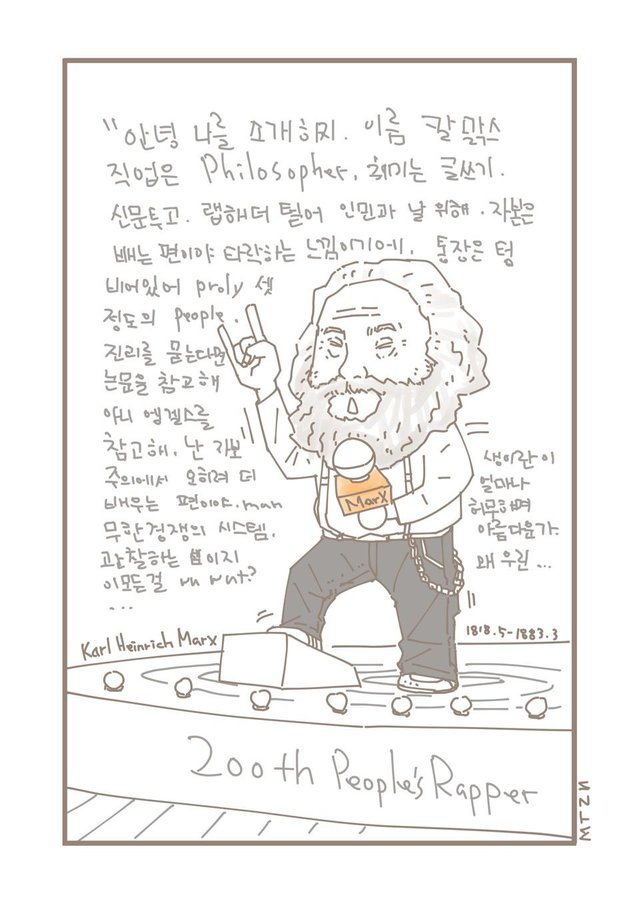 "안녕 나를 소개하지. 이름 칼 맑스
직업은 Philosopher, 취미는 글쓰기.
신문투고. 랩해더 털어 인민과 날 위해. 자본은
배는 편이야 타락하는 느낌이기에, 통장은 텅
비어있어 proly 셋
정도의 people.
진리를 묻는다면
논문을 참고해
아니 엥겔스를
참고해. 난 자본
주의에서 오히려 더
배우는 편이야. man
무한경쟁의 시스템.
관찰하는 편이지
이모든걸 wut?
...
생이란 이
얼마나
허무하며
아름다운가.
왜 우린 ...
MarX
Karl Heinrich Marx
1818.5-1883.3
200th People's Rapper
MTZN